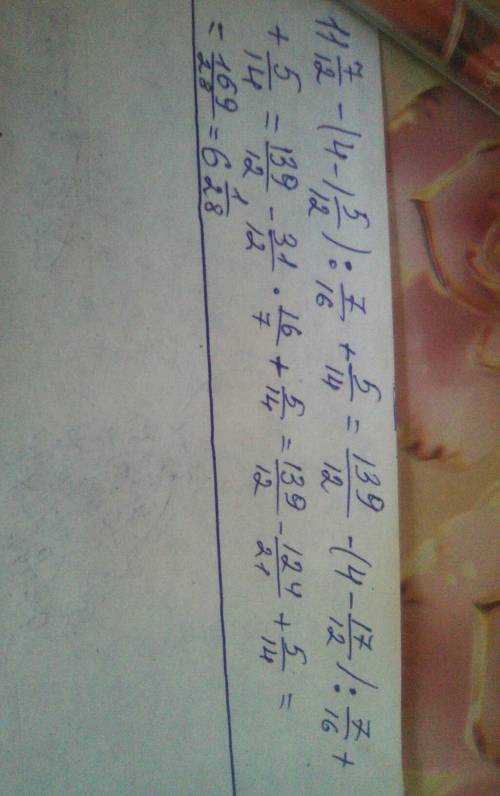 11 7/12 - (4 - 1 5/12) : 7/16 + 5/14 = 139/12 - (4 - 17/12) : 7/16 +
+ 5/14 = 139/12 - 31/12 · 16/7 + 5/14 = 139/12 - 124/21 + 5/14 =
= 169/28 = 6 1/28